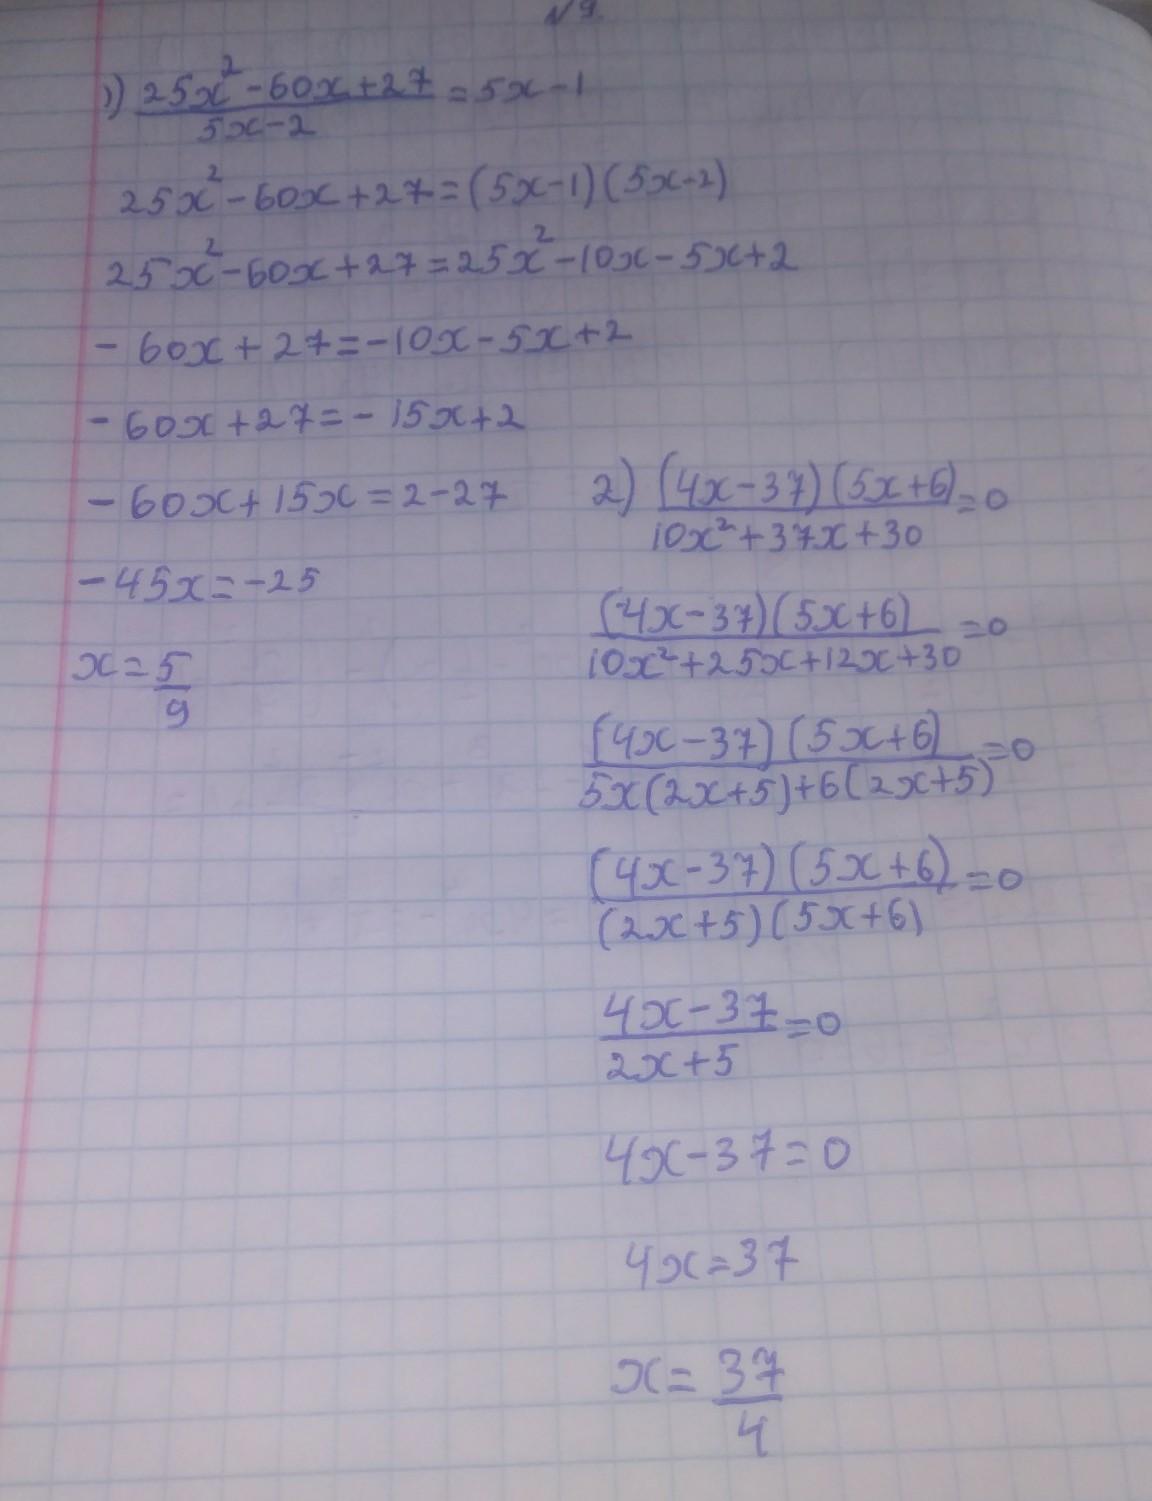 №9.
1) (25x² - 60x + 27)/(5x - 2) = 5x - 1
25x² - 60x + 27 = (5x - 1)(5x - 2)
25x² - 60x + 27 = 25x² - 10x - 5x + 2
- 60x + 27 = - 10x - 5x + 2
- 60x + 27 = - 15x + 2
- 60x + 15x = 2 - 27
- 45x = - 25
x = 5/9
2) (4x - 37)(5x + 6)/(10x² + 37x + 30) = 0
(4x - 37)(5x + 6)/(10x² + 25x + 12x + 30) = 0
(4x - 37)(5x + 6)/(5x(2x + 5) + 6(2x + 5)) = 0
(4x - 37)(5x + 6)/((2x + 5)(5x + 6)) = 0
(4x - 37)/(2x + 5) = 0
4x - 37 = 0
4x = 37
x = 37/4